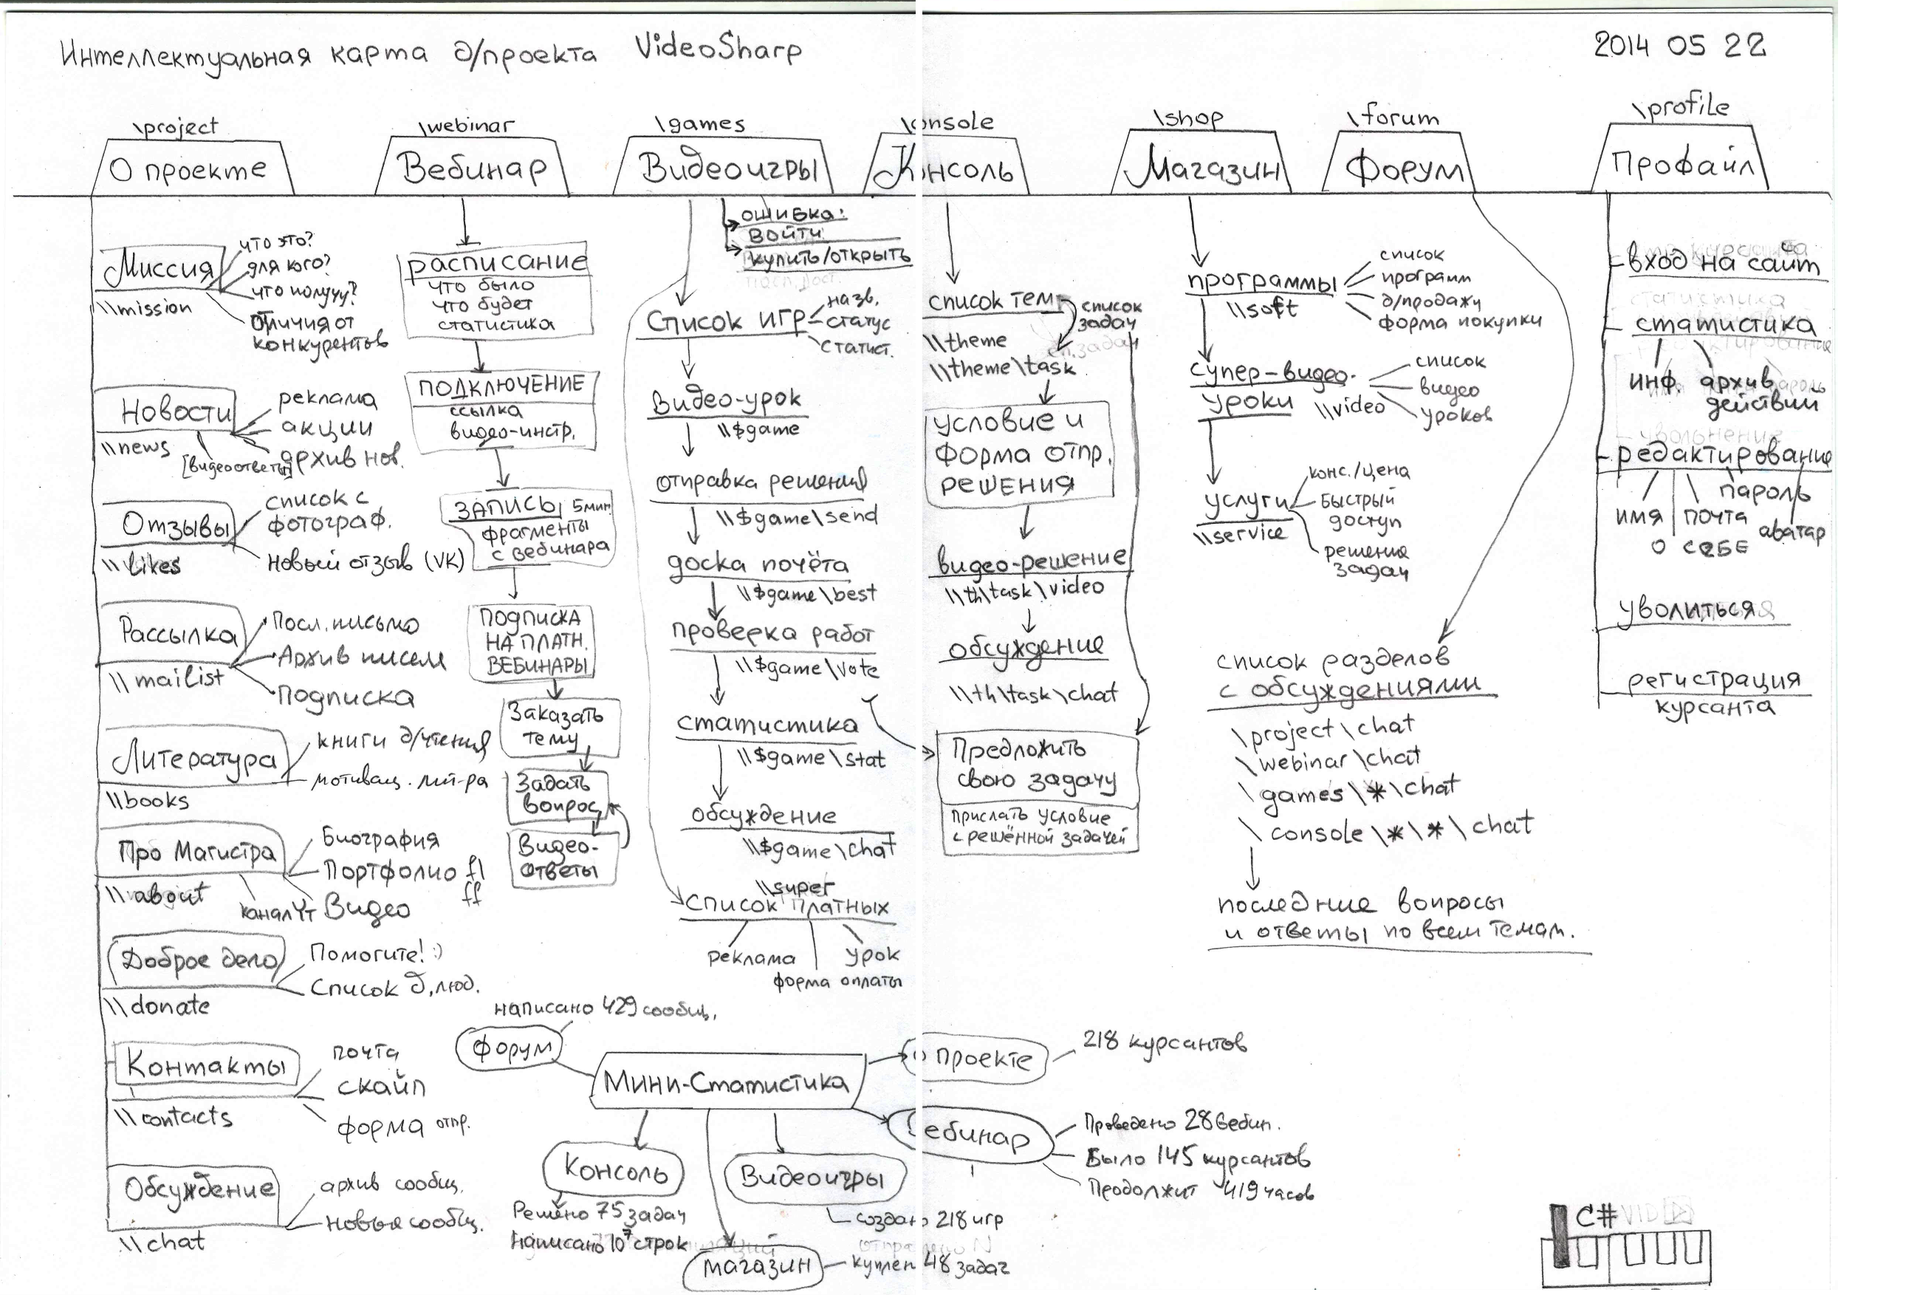 Интеллектуальная карта д/проекта VideoSharp
2014 05 22
\project
О проекте
Миссия
\\mission
что это?
для кого?
что получу?
Отличия от
конкурентов
Новости
\\news
реклама
акции
архив нов.
[видеоответы]
Отзывы
\\likes
список с
фотограф.
Новый отзыв (VK)
Рассылка
\\maillist
Посл. письмо
Архив писем
Подписка
Литература
\\books
книги д/чтения
мотивац. лит-ра
Про Магистра
\\about
Биография
Портфолио fl
ff
Видео
канал YT
Доброе дело
\\donate
Помогите! :)
Список д. люд.
Контакты
\\contacts
почта
скайп
форма отпр.
Обсуждение
\\chat
архив сообщ.
новые сообщ.
\webinar
Вебинар
расписание
что было
что будет
статистика
подключение
ссылка
видео-инстр.
записи 5 мин.
фрагменты
с вебинара
Подписка
на платн.
вебинары
Заказать
тему
Задать
вопрос
Видео-
ответы
\games
Видеоигры
ошибка:
войти
купить/открыть
Список игр
назв.
статус
статист.
Видео-урок
\\$game
отправка решения
\\$game\send
доска почёта
\\$game\best
проверка работ
\\$game\vote
статистика
\\$game\stat
обсуждение
\\$game\chat
\\super
список платных
реклама
форма оплаты
урок
\console
Консоль
список тем
список
задач
\\theme
\\theme\task
условие и
форма отпр.
решения
видео-решение
\\th\task\video
обсуждение
\\th\task\chat
Предложить
свою задачу
прислать условие
с решённой задачей
\shop
Магазин
программы
\\soft
список
программ
д/продажи
форма покупки
супер-видео-
уроки
\\video
список
видео
уроков
услуги
\\service
конс./цена
быстрый
доступ
решение
задач
\forum
Форум
список разделов
с обсуждениями
\project\chat
\webinar\chat
\games\*\chat
\console\*\*\chat
последние вопросы
и ответы по всем темам.
\profile
Профайл
вход на сайт
статистика
инф.
архив
действий
редактирование
имя
о себе
почта
пароль
аватар
уволиться
регистрация
курсанта
Мини-Статистика
Форум
написано 429 сообщ.
О проекте
218 курсантов
Вебинар
Проведено 28 вебин.
Было 145 курсантов
Продолжит 419 часов
Консоль
Решено 75 задач
написано 10⁷ строк
Видеоигры
создано 218 игр
магазин
куплен 48 задач
C#